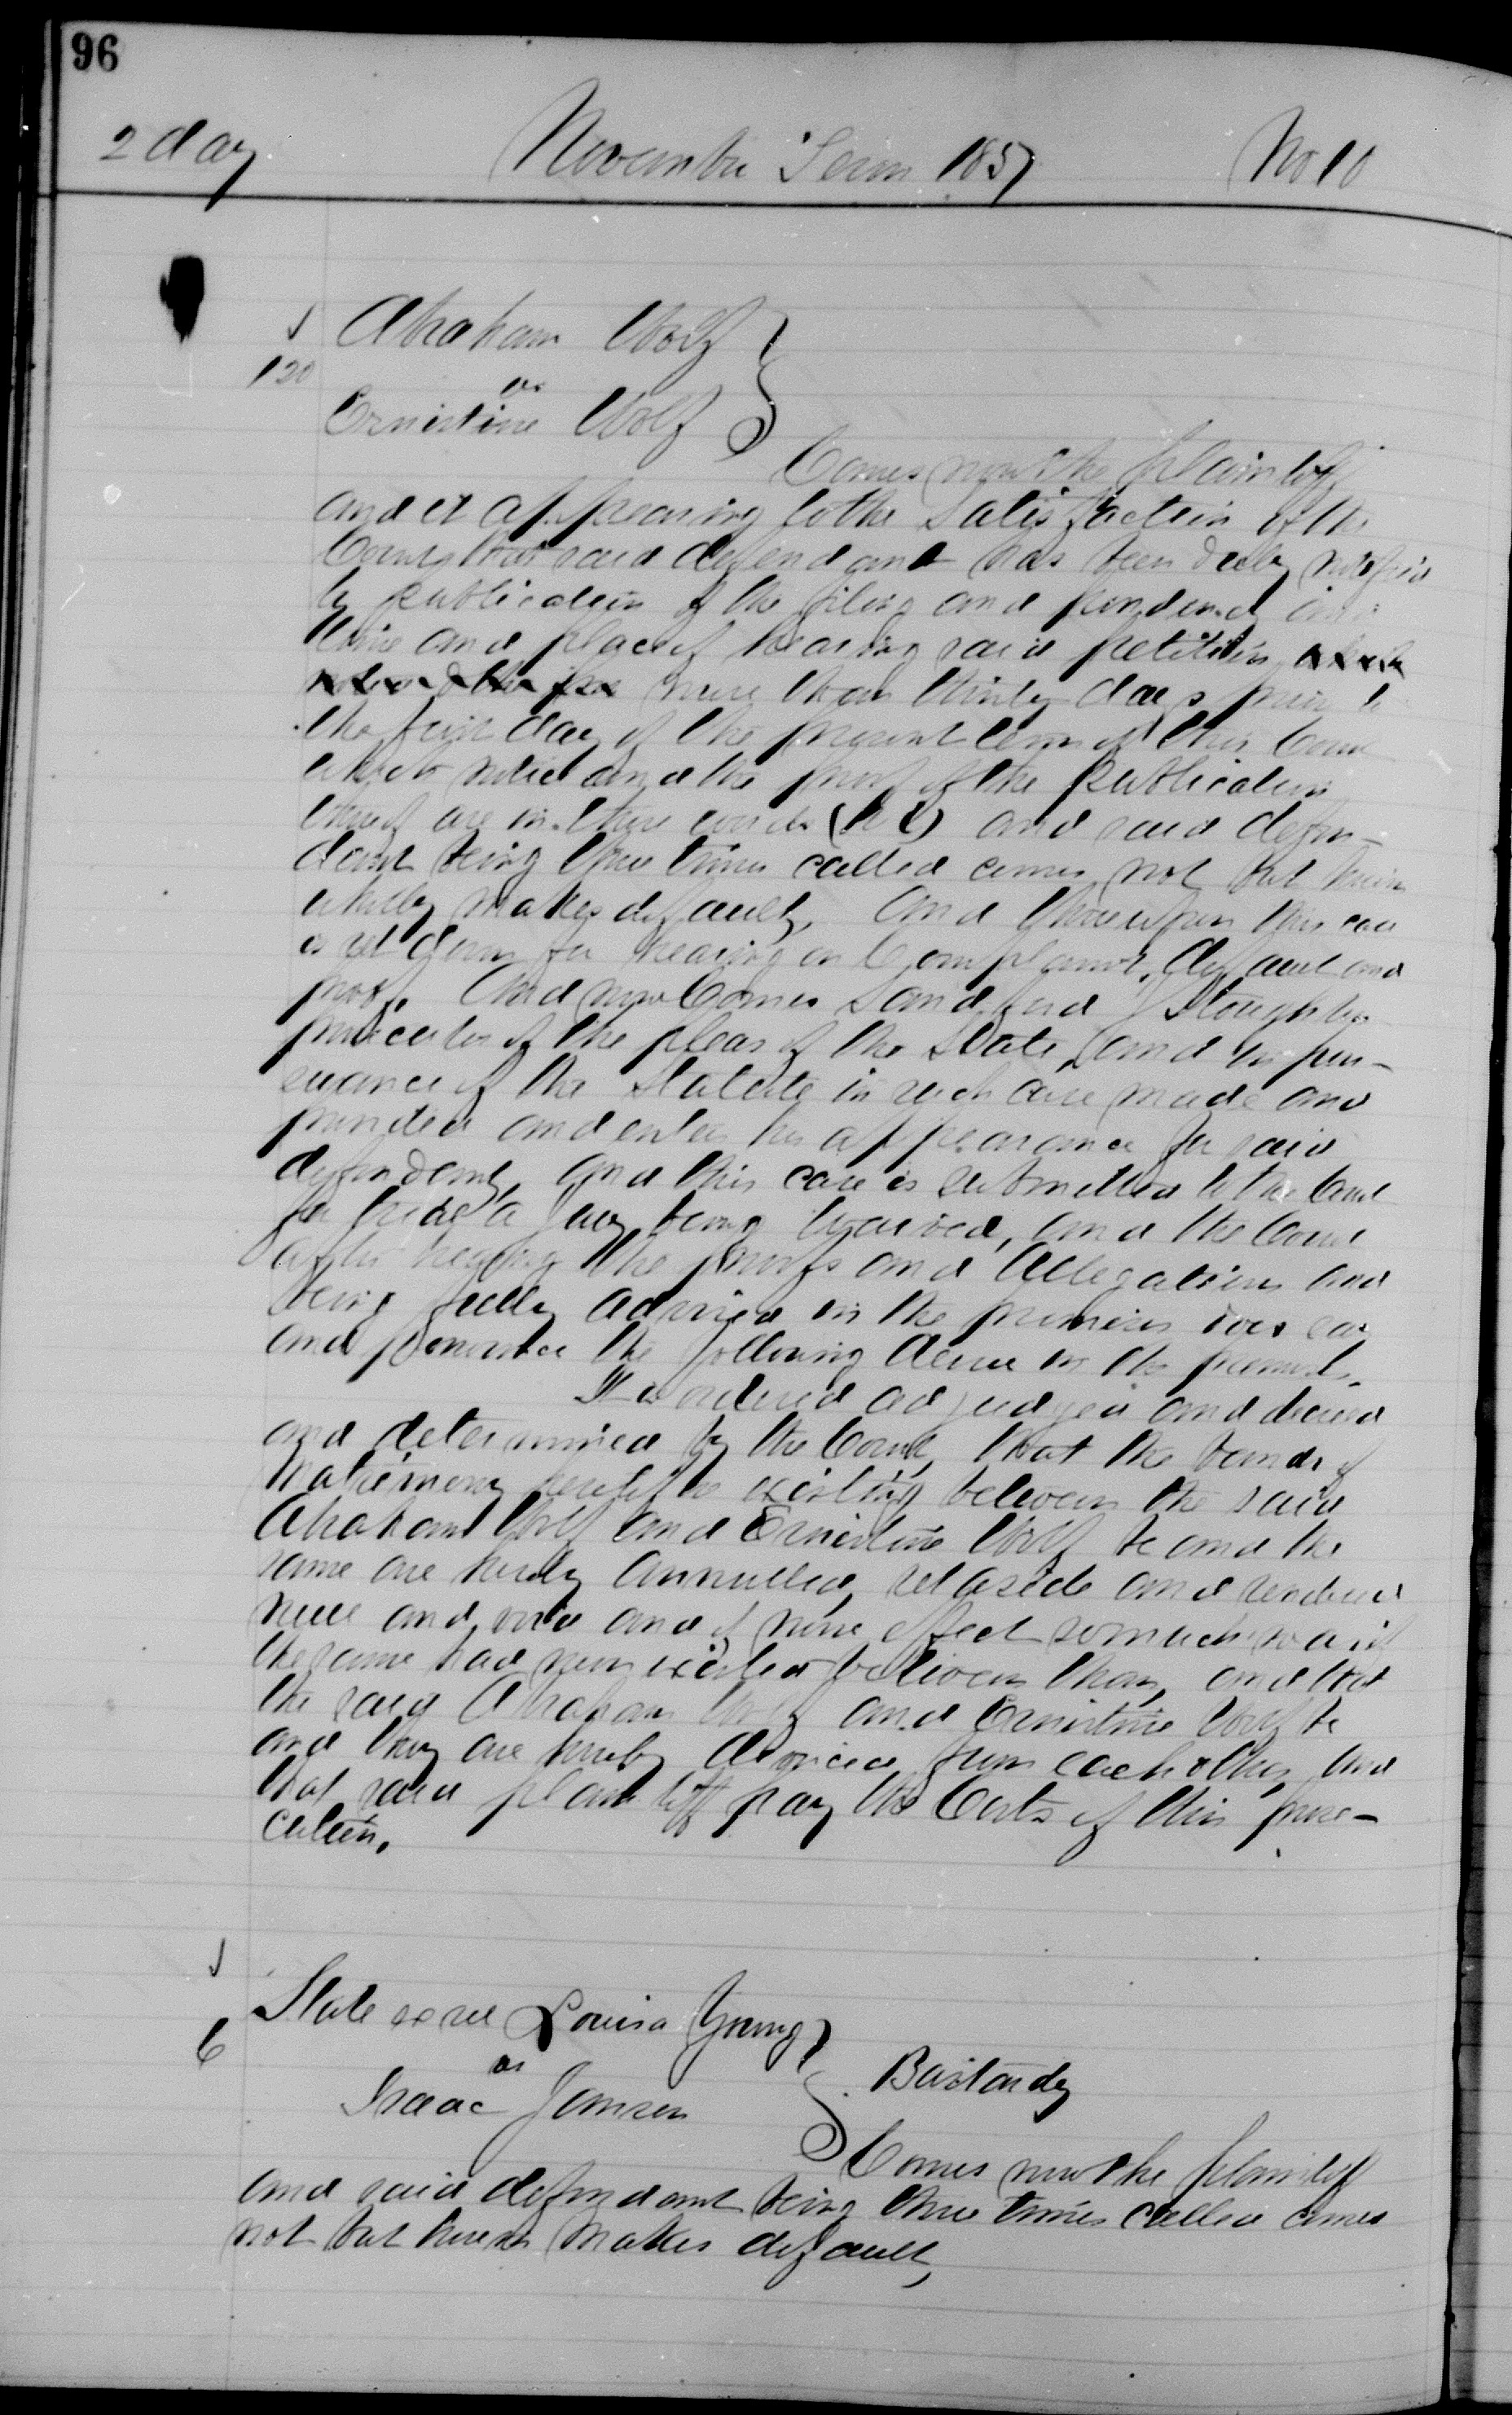 96
2 day November Term 1857 No 10
Abraham Wolf
120
vs
Ernistine Wolf
Comes now the plaintiff
and it appearing to the Satisfaction of the
Court that said defendant has been duly notified
by publication of the filing and pendency and
time and place of hearing said petition
more than thirty days prior to
the first day of the present term of this Court
which notice and the proof of the publication
thereof are in these words (h i) and said defen-
dant being three times called comes not but herein
wholly makes default, And thereupon this case
is set down for hearing on Complaint, default and
proof. And now Comes Sandford J Stoughton
prosecutor of the pleas of the State, and in pur-
suance of the Statute in such case made and
provided and enters his appearance for said
defendant, and this case is submitted to the Court
for trial a Jury being waived, and the Court
after hearing the proofs and Allegations and
being fully advised in the premises does say
and pronounce the following decree in the premises.
It is ordered adjudged and decreed
and determined by the Court, that the bands of
Matrimony heretofore existing between the said
Abraham Wolf and Ernistine Wolf be and the
same are hereby annulled, set aside and rendered
null and void and of none effect so much so as if
the same had never existed between them, and that
the said Abraham Wolf and Ernistine Wolf be
and they are hereby divorced from each other, and
that said plaintiff pay the Costs of this prose-
cution.
State ex rel Louisa Young
6
vs
Isaac Jamsen
Bastardy
Comes now the plaintiff
and said defendant being three times called comes
not but herein makes default,